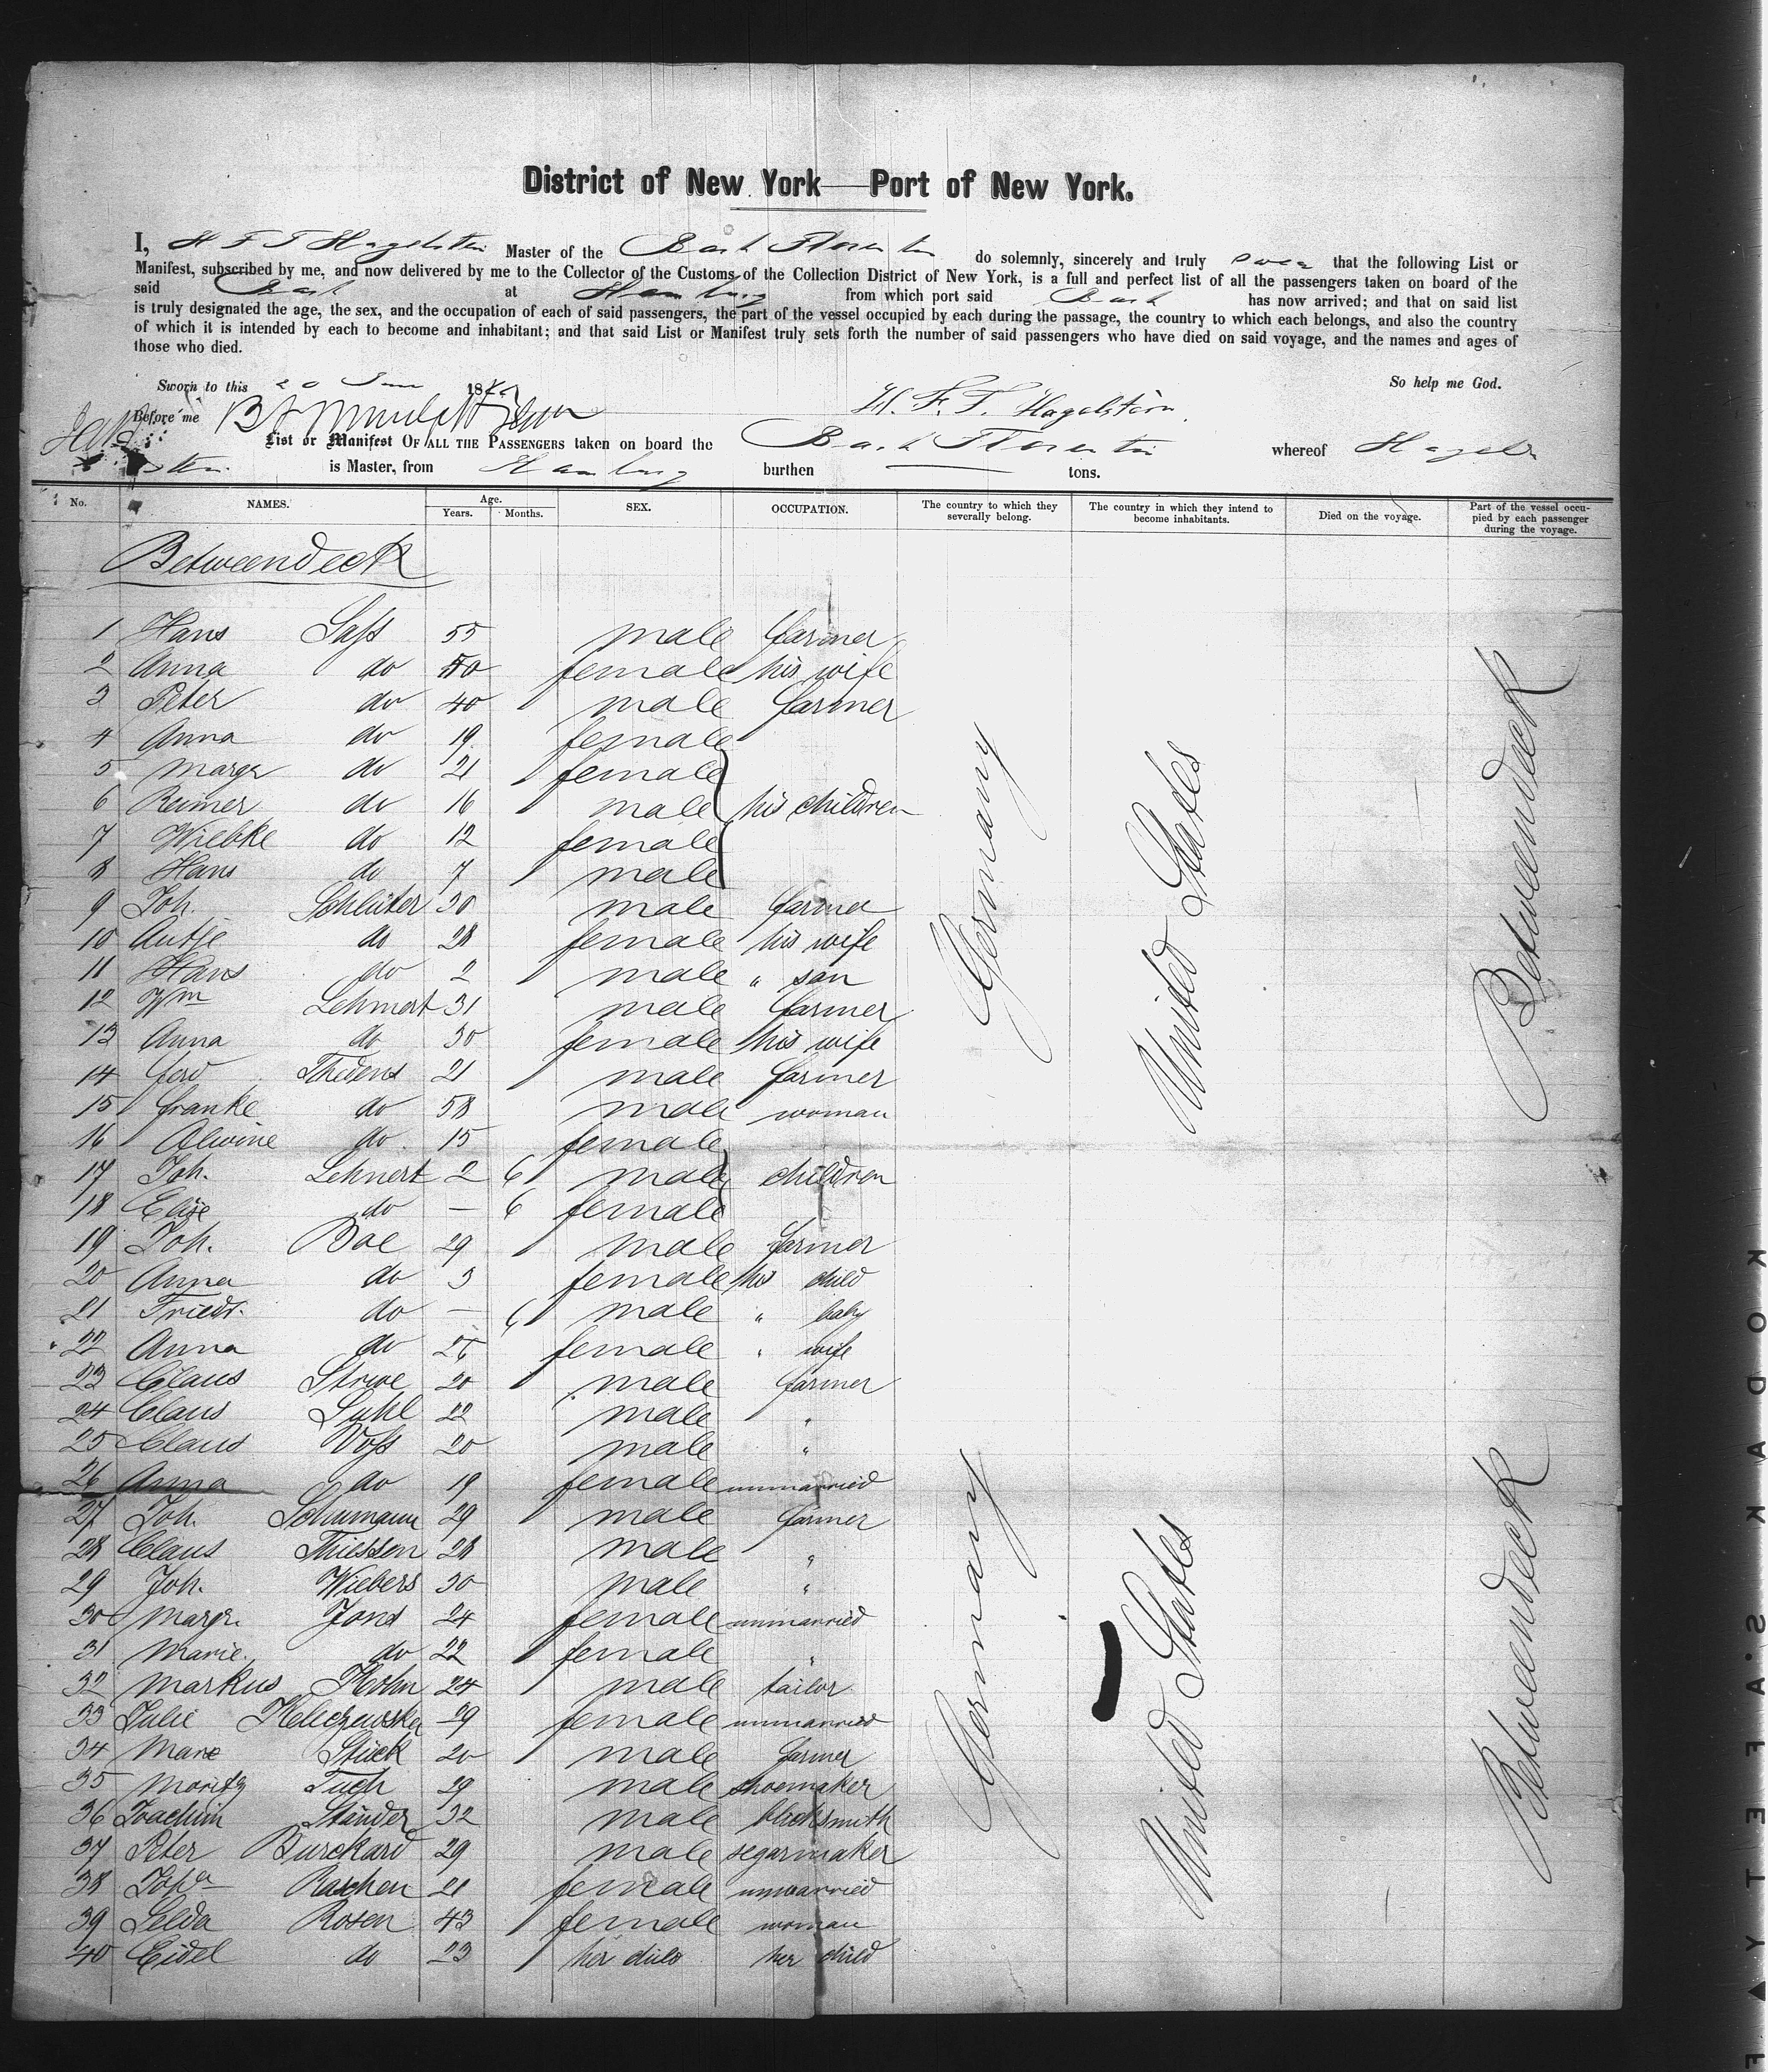 District of New York—Port of New York.
I, H F T Hagelstein Master of the Bark Florentin do solemnly, sincerely and truly swear that the following List or
Manifest, subscribed by me, and now delivered by me to the Collector of the Customs of the Collection District of New York, is a full and perfect list of all the passengers taken on board of the
said Bark at Hamburg from which port said Bark has now arrived; and that on said list
is truly designated the age, the sex, and the occupation of each of said passengers, the part of the vessel occupied by each during the passage, the country to which each belongs, and also the country
of which it is intended by each to become and inhabitant; and that said List or Manifest truly sets forth the number of said passengers who have died on said voyage, and the names and ages of
those who died.
Sworn to this 20 June 18 So help me God.
Before me H. F. T. Hagelstein.
List or Manifest OF ALL THE PASSENGERS taken on board the Bark Florentin whereof Hagel
stein is Master, from Hamburg burthen tons.
No. NAMES. Age. Years. Months. SEX. OCCUPATION. The country to which they severally belong. The country in which they intend to become inhabitants. Died on the voyage. Part of the vessel occupied by each passenger during the voyage.
Betweendeck
1 Hans Saß 55 male farmer
2 Anna do 50 female his wife
3 Peter do 40 male farmer
4 Anna do 19 female
5 Margr do 21 female
6 Reimer do 16 male his children
7 Wiebke do 12 female
8 Hans do 7 male
9 Joh. Schlüter 30 male farmer
10 Antje do 28 female his wife
11 Hans do 2 male " son
12 Wm Lehmert 31 male farmer
13 Anna do 30 female his wife
14 Ferd Thedens 21 male farmer
15 Franke do 58 male woman
16 Alwine do. 15 female
17 Joh. Lehnert 2 6 male children
18 Elise do — 6 female
19 Joh. Boe 29 male farmer
20 Anna do 3 female his child
21 Friedr. do — 6 male " baby
22 Anna do 26 female " wife
23 Claus Struve 20 male farmer
24 Claus Suhl 22 male "
25 Claus Voß 20 male "
26 Anna do 19 female unmarried
27 Joh. Schumann 29 male farmer
28 Claus Thiessen 28 male "
29 Joh. Wiebers 30 male "
30 Margr. Jons 24 female unmarried
31 Marie do 22 female "
32 Markus Krohn 24 male tailor
33 Julie 29 female unmarried
34 Marx Stück 20 male farmer
35 Moritz Tuch 29 male shoemaker
36 Joachim Ständer 32 male blacksmith
37 Peter Burckard 29 male segarmaker
38 Raschen 21 female unmarried
39 Selda Rosen 43 female woman
40 Eidel do 23 her child her child
Germany United States Betweendeck
Germany United States Betweendeck
KODAK S'AFETY